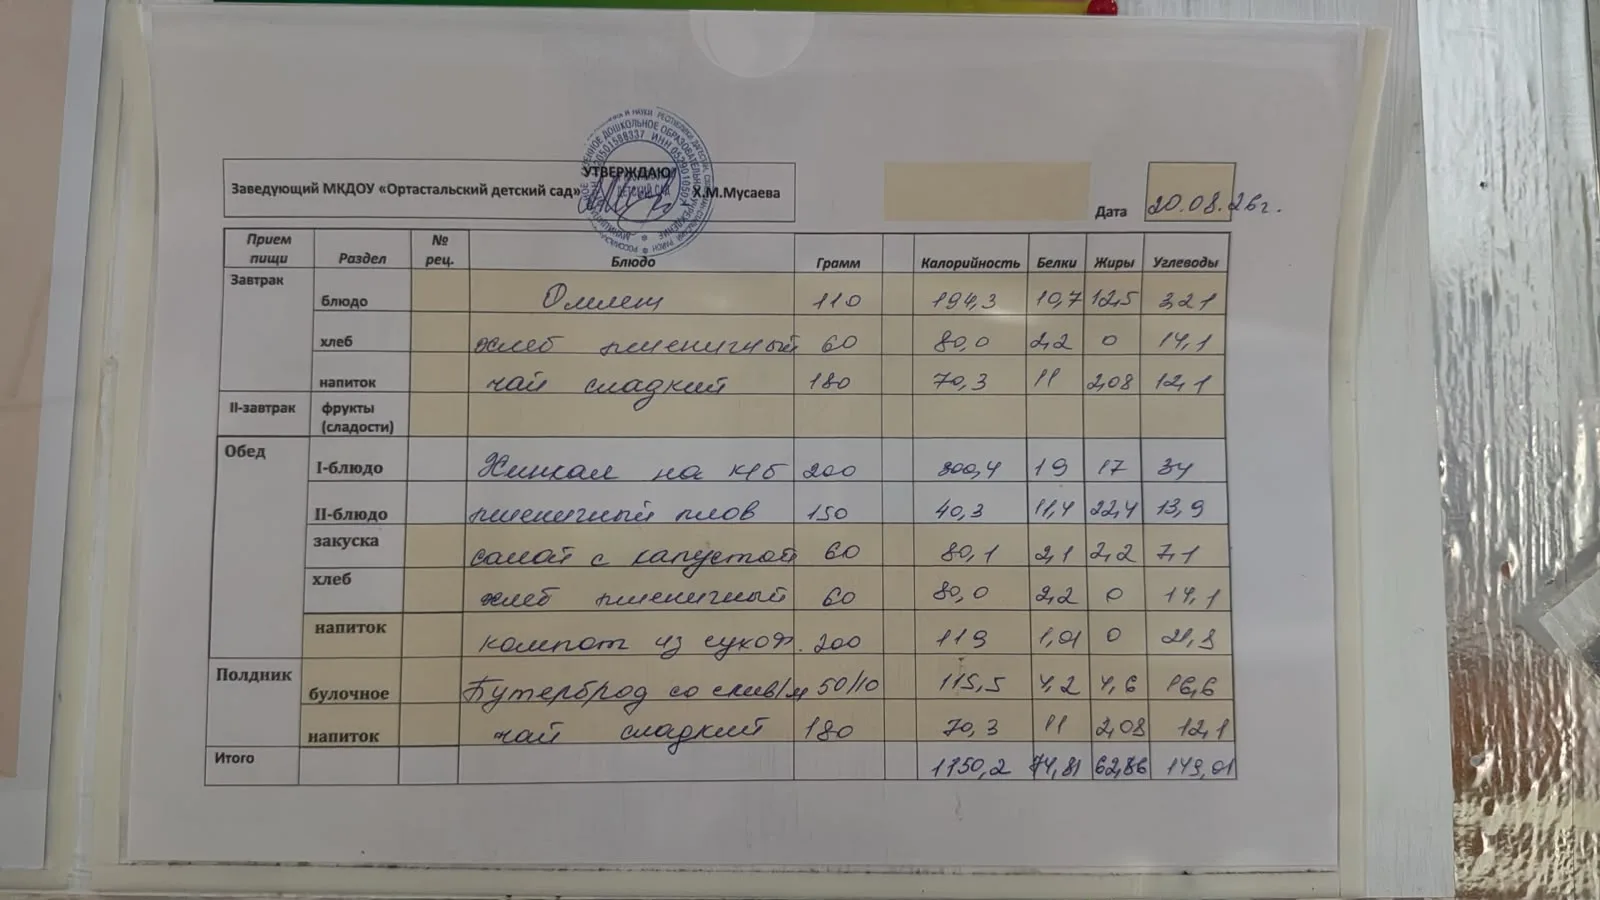 УТВЕРЖДАЮ
Заведующий МКДОУ «Ортастальский детский сад» Х.М.Мусаева
Дата 20.08.26г.
Прием пищи Раздел № рец. Блюдо Грамм Калорийность Белки Жиры Углеводы
Завтрак
блюдо Омлет 110 194,3 10,7 12,5 3,21
хлеб хлеб пшеничный 60 80,0 2,2 0 14,1
напиток чай сладкий 180 70,3 11 2,08 12,1
II-завтрак фрукты (сладости)
Обед
I-блюдо Хинкал на к/б 200 300,4 19 17 34
II-блюдо пшеничный плов 150 40,3 11,4 22,4 13,9
закуска салат с капустой 60 80,1 2,1 2,2 7,1
хлеб хлеб пшеничный 60 80,0 2,2 0 14,1
напиток компот из сухоф. 200 119 1,01 0 21,3
Полдник
булочное Бутерброд со слив/м 50/10 115,5 4,2 4,6 16,6
напиток чай сладкий 180 70,3 11 2,08 12,1
Итого 1150,2 74,81 62,86 149,01